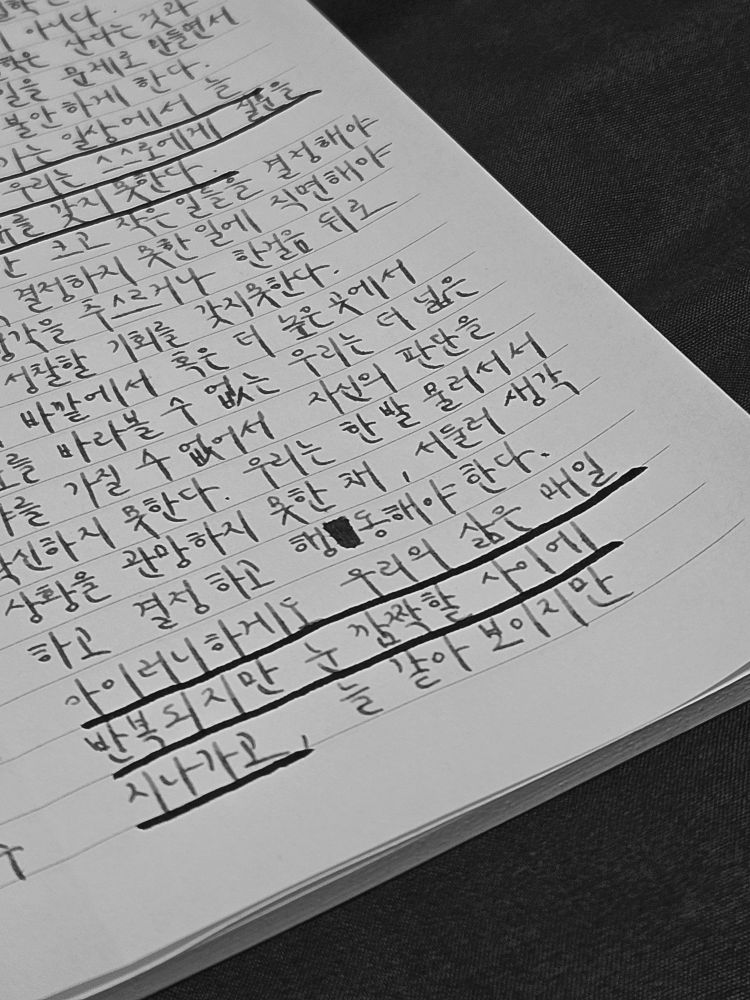 아니다.
산다는 것과
일을 문제로 만들면서
불안하게 한다.
가는 일상에서 늘
우리는 스스로에게 질문을
갖지 못한다.
크고 작은 일들을 결정해야
결정하지 못한 일에 직면해야
생각을 추스르거나 한걸음 뒤로
성찰할 기회를 갖지못한다.
바깥에서 혹은 더 높은 곳에서
바라볼 수 없는 우리는 더 넓은
가질 수 없어서 자신의 판단을
확신하지 못한다. 우리는 한발 물러서서
상황을 관망하지 못한 채, 서둘러 생각
하고 결정하고 행동해야 한다.
아이러니하게도 우리의 삶은 매일
반복되지만 눈 깜짝할 사이에
지나가고, 늘 같아 보이지만
수